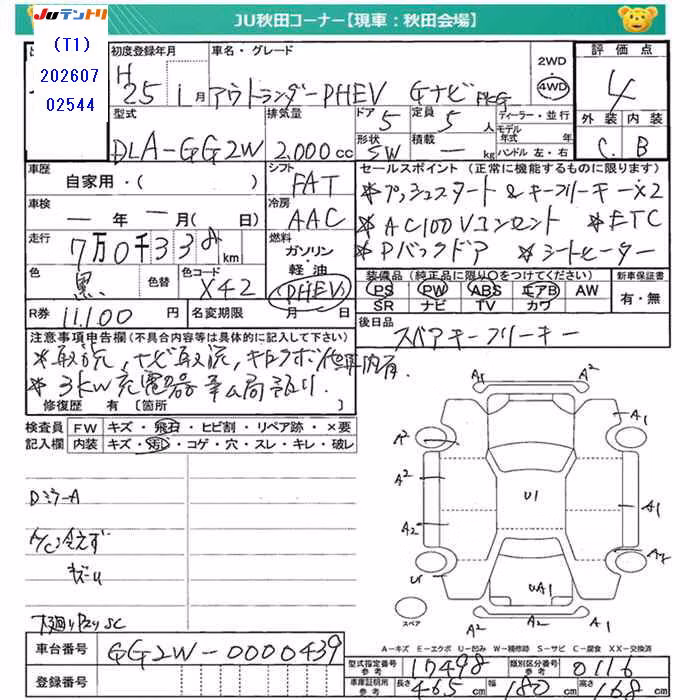 Juテントリ
JU秋田コーナー【現車：秋田会場】
(T1)
202607
02544
初度登録年月
H25 1月
車名・グレード
アウトランダーPHEV Gナビ PKG
2WD
4WD
評価点
4
型式
DLA-GG2W
排気量
2,000cc
ドア
5
定員
5人
ディーラー・並行
モデル年式 年式
外装
内装
C.
B
形状
SW
積載
— kg
ハンドル 左・右
車歴
自家用・( )
シフト
FAT
セールスポイント(正常に機能するものに限ります)
*プッシュスタート&キーフリーキーx2
車検
— 年 — 月(日)
冷房
AAC
*AC100Vコンセント *ETC
走行
7万0千33 km
燃料
ガソリン・
軽油
(PHEV)
*Pバックドア *シートヒーター
色
黒
色替
色コード
X42
装備品(純正品に限り○をつけてください)
新車保証書
PS PW ABS エアB AW
SR ナビ TV カワ
有・無
R券
11,100円
名変期限
月 日
後日品
スペアキーフリーキー
注意事項申告欄(不具合内容等は具体的に記入して下さい)
*取説,ナビ取説,
*3kw充電器
修復歴 有 [箇所
検査員
記入欄
FW
キズ・飛石・ヒビ割・リペア跡・×要
内装
キズ・汚レ・コゲ・穴・スレ・キレ・破レ
DミラーA
A/C冷えず
キズU
A1
A2
A1
A2
A2
A2
U1
A1
A2
U1
UA1
A2
A2
スペア
A=キズ E=エクボ U=凹み W=補修跡 S=サビ C=腐食 XX=交換済
車台番号
GG2W-0000439
登録番号
型式指定番号
参考
17498
類別区分番号
参考
0116
車庫証明用
参考
長さ
465cm
幅
180cm
高さ
168cm